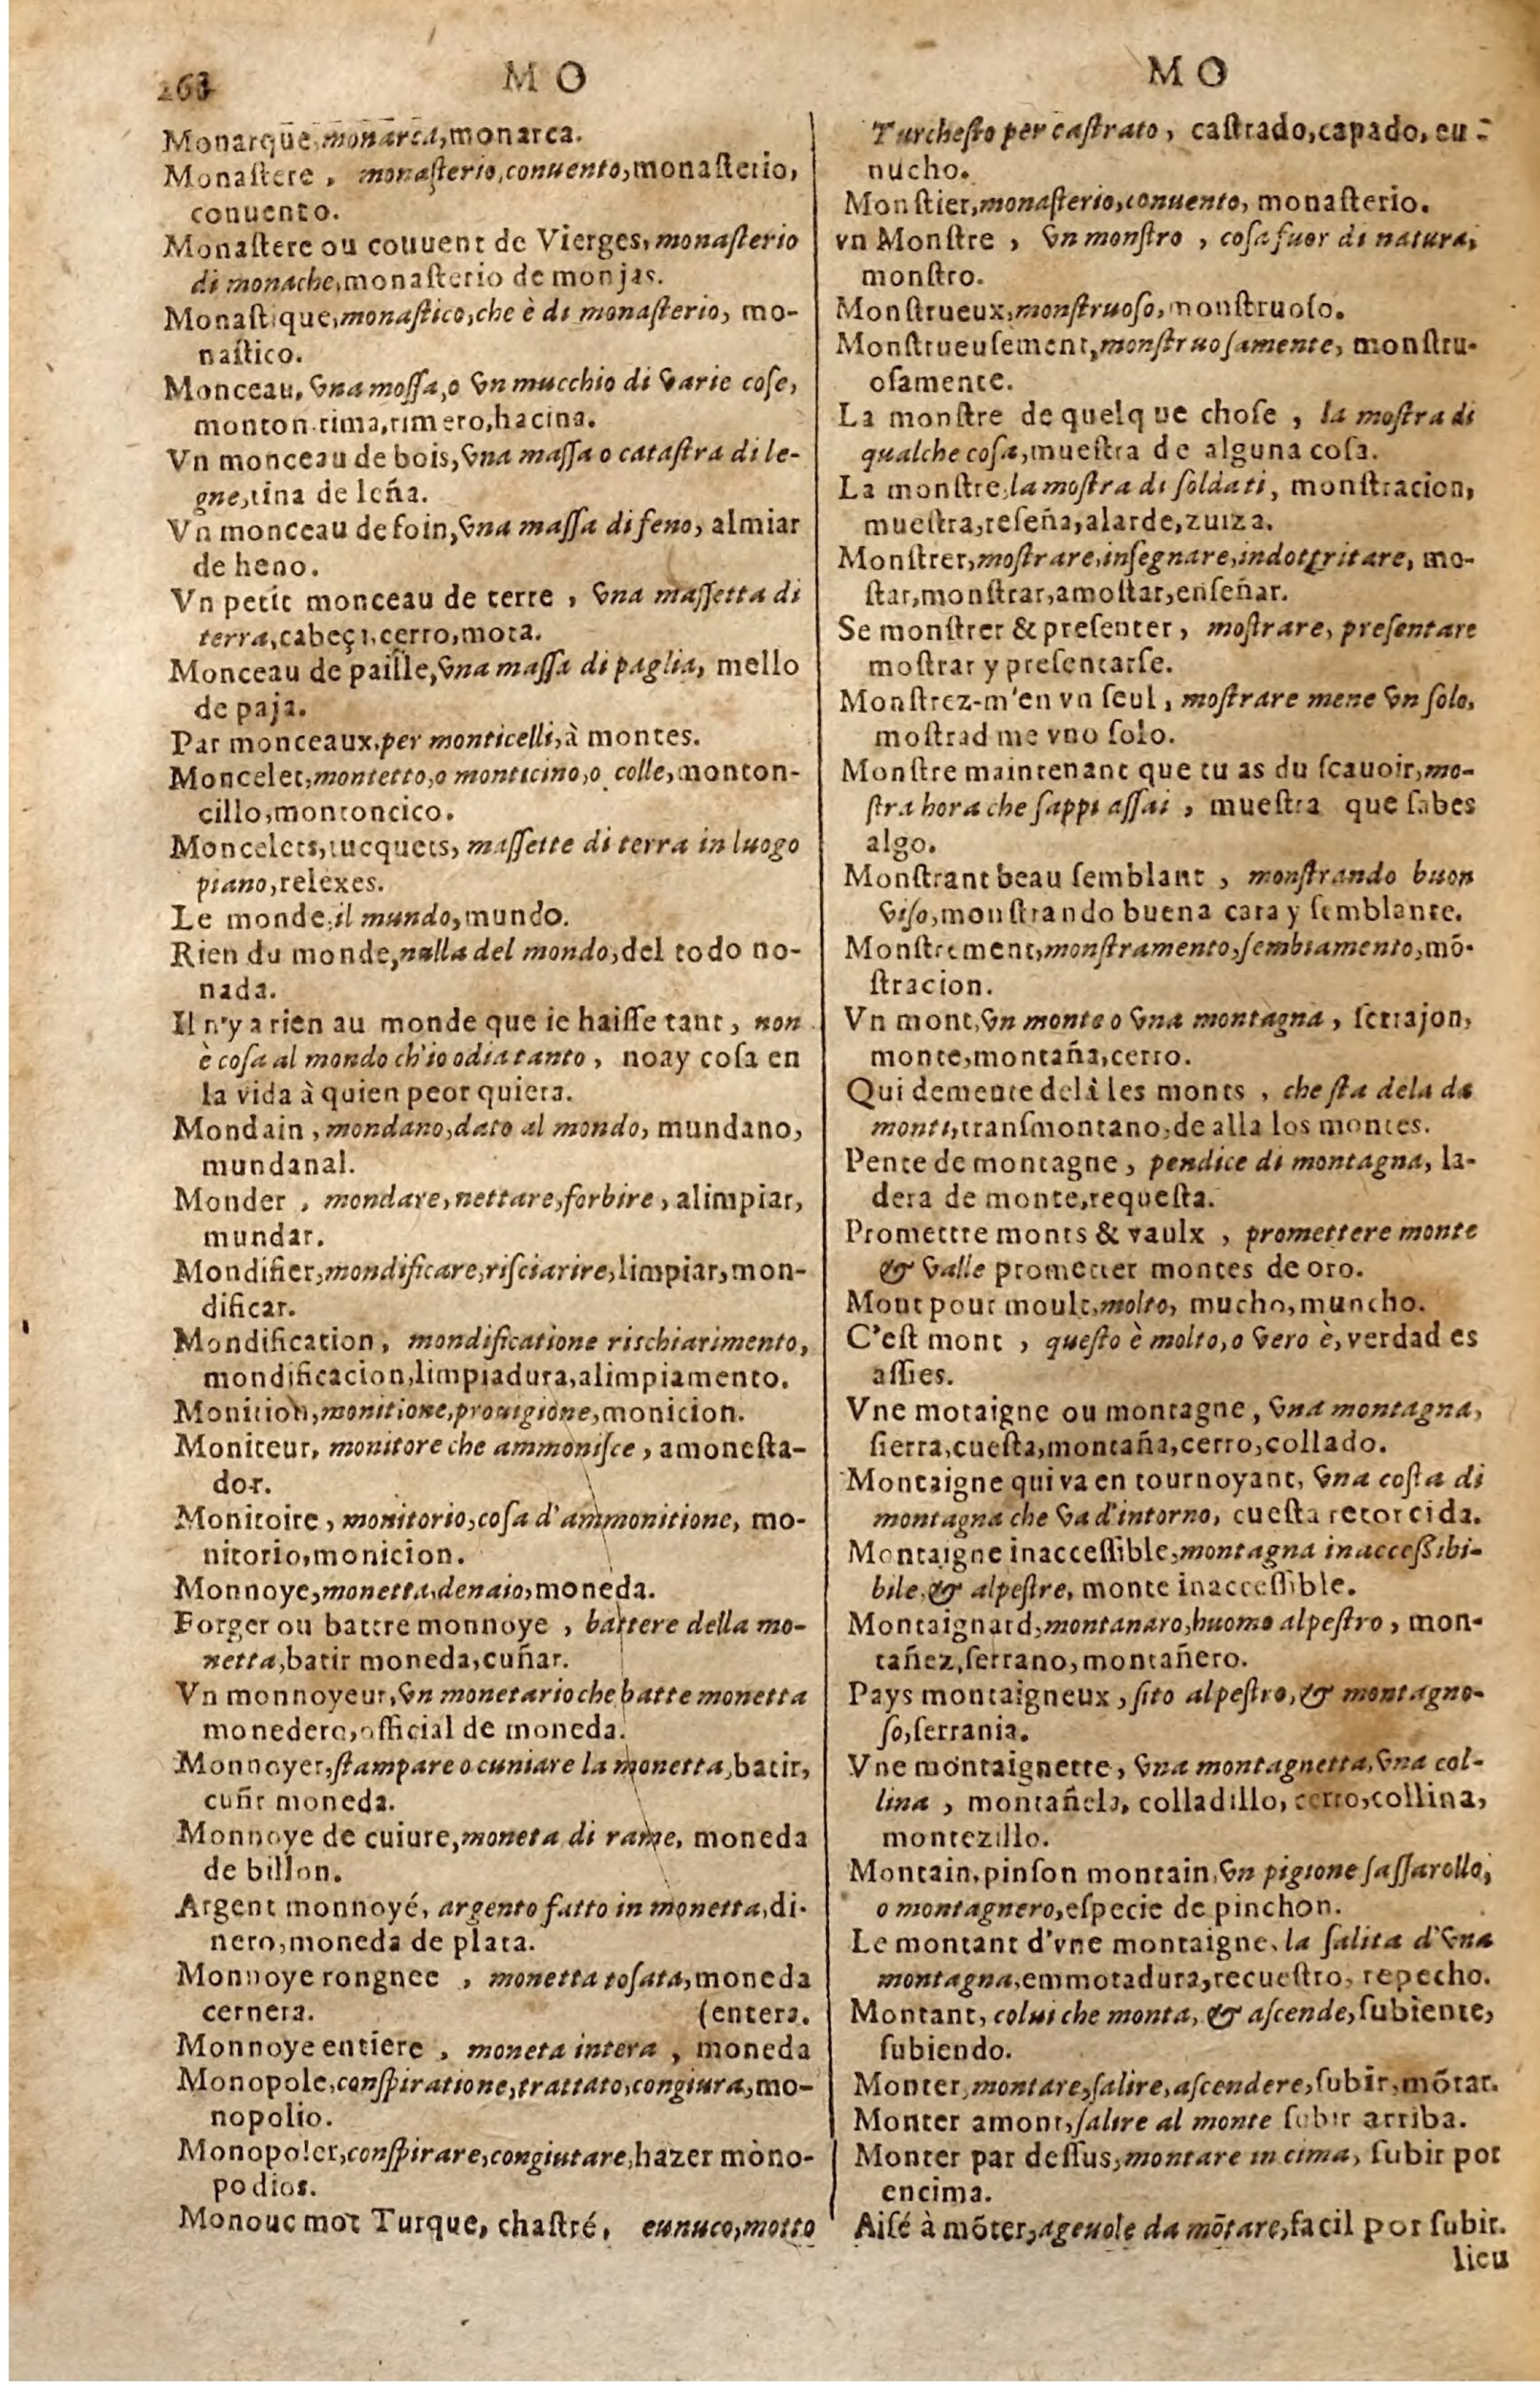 268
M O
Monarque, monarca, monarca.
Monaſtere, monaſterio, conuento, monaſterio,
conuento.
Monaſtere ou couuent de Vierges, monaſterio
di monache, monaſterio de monjas.
Monaſtique, monaſtico, che è di monaſterio, mo-
naſtico.
Monceau, vna moſſa, o vn mucchio di varie coſe,
monton rima, rimero, hacina.
Vn monceau de bois, vna maſſa o cataſtra di le-
gne, tina de leña.
Vn monceau de foin, vna maſſa di feno, almiar
de heno.
Vn petit monceau de terre, vna maſſetta di
terra, cabeço, cerro, mota.
Monceau de paille, vna maſſa di paglia, mello
de paja.
Par monceaux, per monticelli, à montes.
Moncelet, montetto, o monticino, o colle, monton-
cillo, montoncico.
Moncelets, tucquets, maſſette di terra in luogo
piano, relexes.
Le monde, il mundo, mundo.
Rien du monde, nulla del mondo, del todo no-
nada.
Il n'y a rien au monde que ie haiſſe tant, non
è coſa al mondo ch'io odia tanto, noay coſa en
la vida à quien peor quiera.
Mondain, mondano, dato al mondo, mundano,
mundanal.
Monder, mondare, nettare, forbire, alimpiar,
mundar.
Mondifier, mondificare, riſciarire, limpiar, mon-
dificar.
Mondification, mondificatione riſchiarimento,
mondificacion, limpiadura, alimpiamento.
Monition, monitione, prouigione, monicion.
Moniteur, monitore che ammoniſce, amoneſta-
dor.
Monitoire, monitorio, coſa d'ammonitione, mo-
nitorio, monicion.
Monnoye, monetta, denaio, moneda.
Forger ou battre monnoye, battere della mo-
netta, batir moneda, cuñar.
Vn monnoyeur, vn monetario che batte monetta
monedero, official de moneda.
Monnoyer, ſtampare o cuniare la monetta, batir,
cuñr moneda.
Monnoye de cuiure, moneta di rame, moneda
de billon.
Argent monnoyé, argento fatto in monetta, di-
nero, moneda de plata.
Monnoye rongnee, monetta toſata, moneda
cernera. (entera.
Monnoye entiere, moneta intera, moneda
Monopole, conſpiratione, trattato, congiura, mo-
nopolio.
Monopoler, conſpirare, congiutare, hazer mono-
podios.
Monouc mot Turque, chaſtré, eunuco, motto
M O
Turcheſto per caſtrato, caſtrado, capado, eu-
nucho.
Monſtier, monaſterio, conuento, monaſterio.
vn Monſtre, vn monſtro, coſa fuor di natura,
monſtro.
Monſtrueux, monſtruoſo, monſtruoſo.
Monſtrueuſement, monſtruoſamente, monſtru-
oſamente.
La monſtre de quelque choſe, la moſtra di
qualche coſa, mueſtra de alguna coſa.
La monſtre, la moſtra di ſoldati, monſtracion,
mueſtra, reſeña, alarde, zuiza.
Monſtrer, moſtrare, inſegnare, indottritare, mo-
ſtar, monſtrar, amoſtar, enſeñar.
Se monſtrer & preſenter, moſtrare, preſentare
moſtrar y preſentarſe.
Monſtrez-m'en vn ſeul, moſtrare mene vn ſolo,
moſtrad me vno ſolo.
Monſtre maintenant que tu as du ſcauoir, mo-
ſtra hora che ſappi aſſai, mueſtra que ſabes
algo.
Monſtrant beau ſemblant, monſtrando buon
viſo, monſtrando buena cara y ſemblante.
Monſtrement, monſtramento, ſembiamento, mõ-
ſtracion.
Vn mont, vn monte o vna montagna, ſerrajon,
monte, montaña, cerro.
Qui demeure delà les monts, che ſta dela da
monti, tranſmontano, de alla los montes.
Pente de montagne, pendice di montagna, la-
dera de monte, requeſta.
Promettre monts & vaulx, promettere monte
& valle prometter montes de oro.
Mont pour moult, molto, mucho, muncho.
C'eſt mont, queſto è molto, o vero è, verdad es
aſſies.
Vne motaigne ou montagne, vna montagna,
ſierra, cueſta, montaña, cerro, collado.
Montaigne qui va en tournoyant, vna coſta di
montagna che va d'intorno, cueſta retorcida.
Montaigne inacceſſible, montagna inacceſſibi-
bile, & alpeſtre, monte inacceſſible.
Montaignard, montanaro, huomo alpeſtro, mon-
tañez, ſerrano, montañero.
Pays montaigneux, ſito alpeſtro, & montagno-
ſo, ſerrania.
Vne montaignette, vna montagnetta, vna col-
lina, montañela, colladillo, cerro, collina,
montezillo.
Montain, pinſon montain, vn pigione ſaſſarollo,
o montagnero, eſpecie de pinchon.
Le montant d'vne montaigne, la ſalita d'vna
montagna, emmotadura, recueſtro, repecho.
Montant, colui che monta, & aſcende, ſubiente,
ſubiendo.
Monter, montare, ſalire, aſcendere, ſubir, mõtar.
Monter amont, ſalire al monte ſubir arriba.
Monter par deſſus, montare in cima, ſubir por
encima.
Aiſé à mõter, ageuole da mõtare, facil por ſubir.
lieu